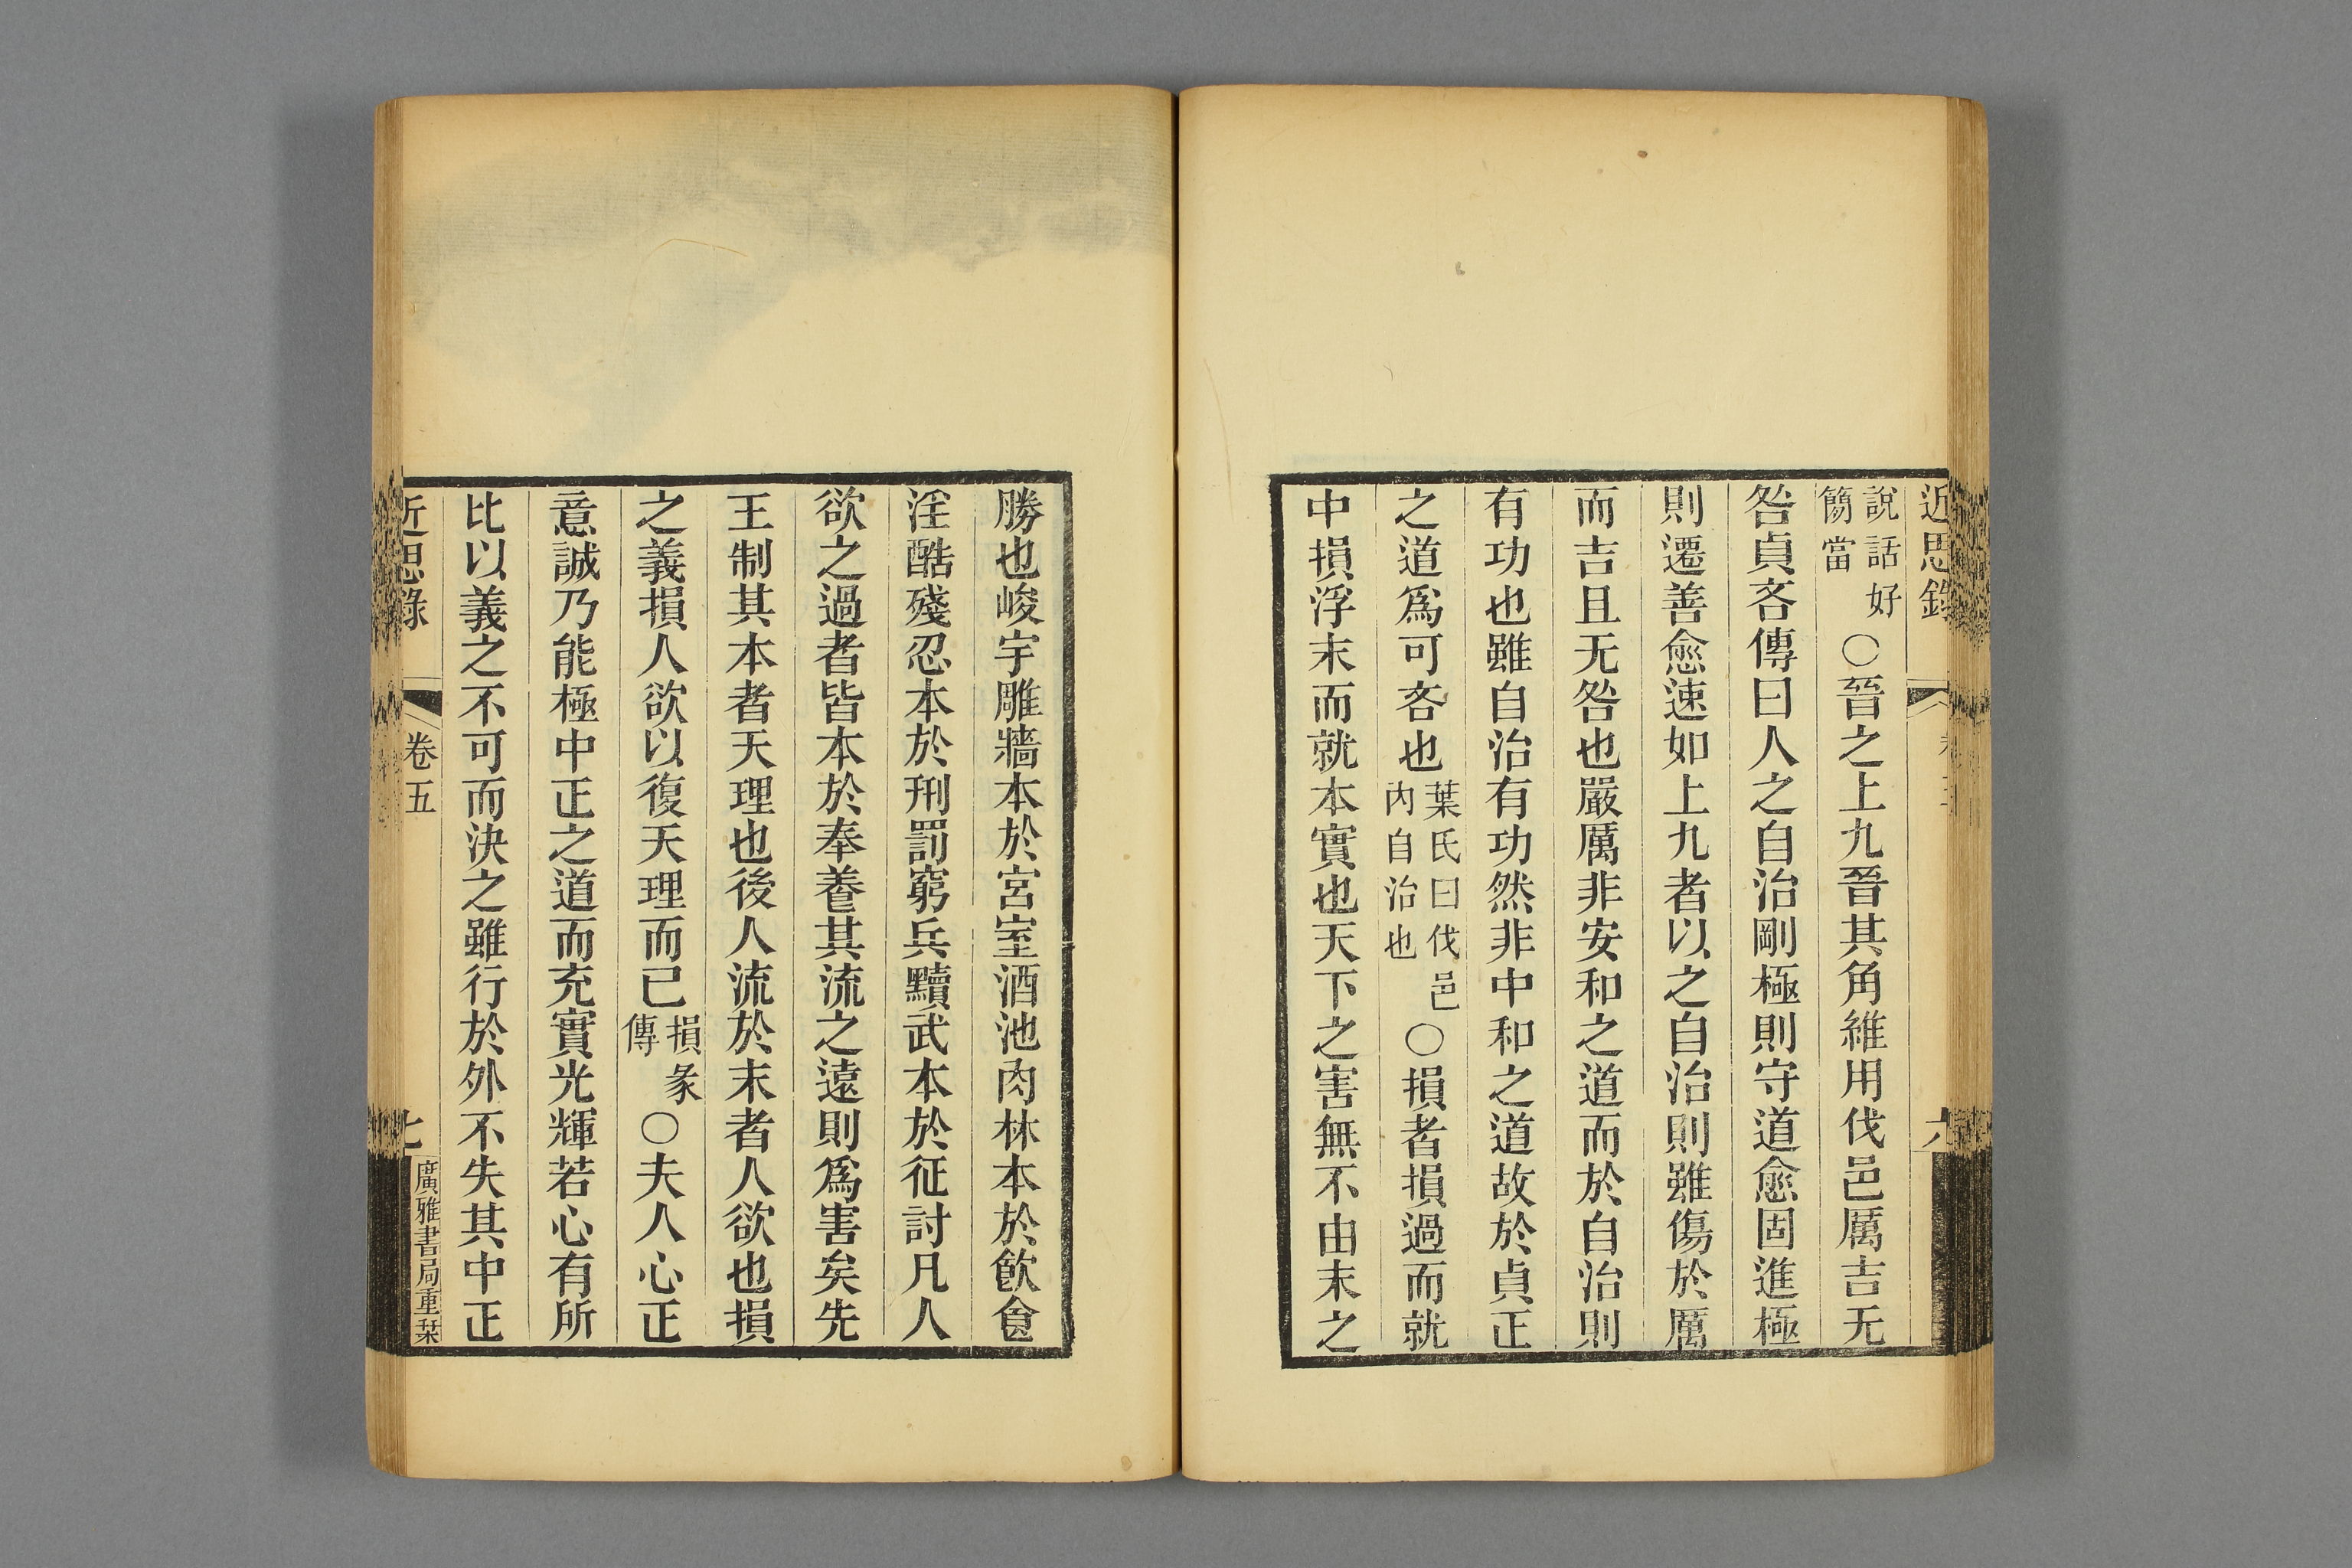 近思錄
六
說話好
簡當
○晉之上九晉其角維用伐邑厲吉无
咎貞吝傳曰人之自治剛極則守道愈固進極
則遷善愈速如上九者以之自治則雖傷於厲
而吉且无咎也嚴厲非安和之道而於自治則
有功也雖自治有功然非中和之道故於貞正
之道爲可吝也
葉氏曰伐邑
內自治也
○損者損過而就
中損浮末而就本實也天下之害無不由末之
勝也峻宇雕牆本於宮室酒池肉林本於飮食
淫酷殘忍本於刑罰窮兵黷武本於征討凡人
欲之過者皆本於奉養其流之遠則爲害矣先
王制其本者天理也後人流於末者人欲也損
之義損人欲以復天理而已
損彖
傳
○夫人心正
意誠乃能極中正之道而充實光輝若心有所
比以義之不可而決之雖行於外不失其中正
近思錄
卷五
七
廣雅書局重栞